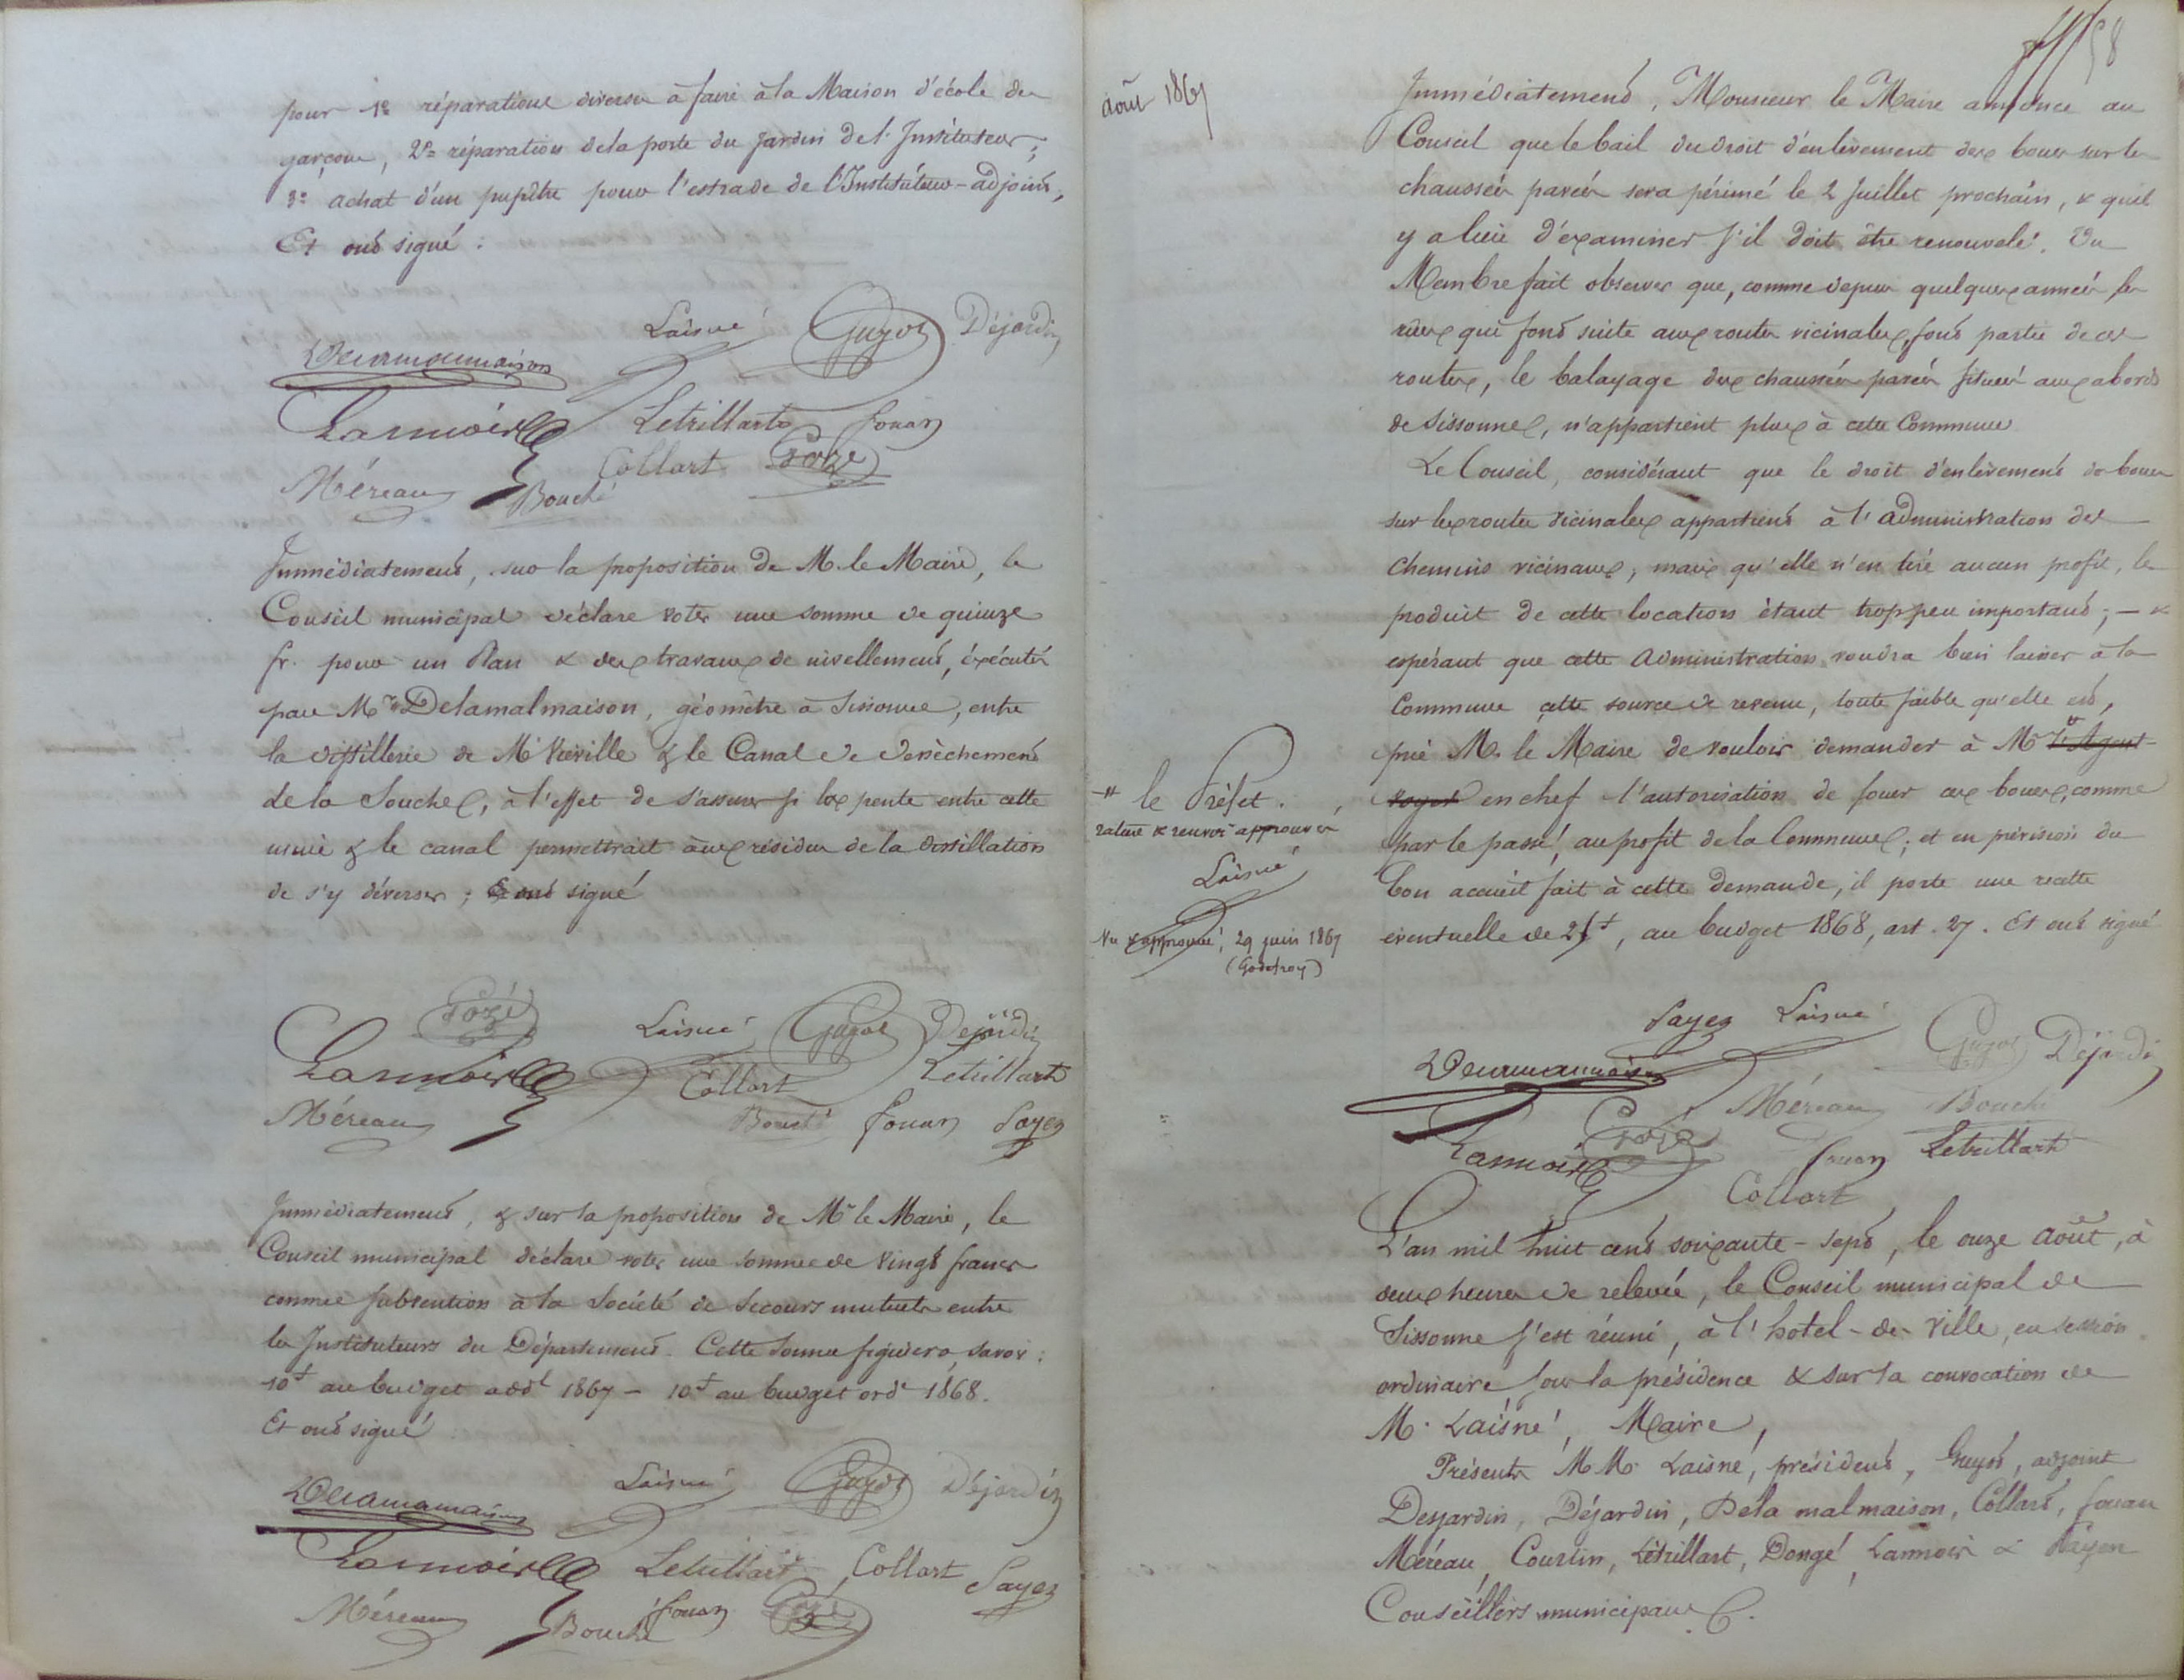 pour 1° réparations diverses à faire à la Maison d'école des
garçons, 2° réparation de la porte du jardin de l'Instituteur;
3° achat d'un pupître pour l'estrade de l'Instituteur-adjoint,
Et ont signé :
Laisné Guyot Déjardin
Delamalmaison
Lannois Letrillart fouan
Collart
Méreau Bouché
Immédiatement, sur la proposition de M. le Maire, le
Conseil municipal déclare voter une somme de quinze
fr. pour un Plan & des travaux de nivellement, éxécutés
par Mr Delamalmaison, géomètre à Sissonne, entre
la distillerie de Mr Viéville & le Canal de dessèchement
de la Souche, à l'effet de s'assurer si la pente entre cette
usine & le canal permettrait aux résidus de la distillation
de s'y déverser ; & ont signé
Laisné Guyot Dejardin
Lannois Collart Letrillart
Méreau Bouché fouan Payen
Immédiatement, & sur la proposition de Mr le Maire, le
Conseil municipal déclare voter une somme de vingt francs
comme subvention à la Société de Secours mutuels entre
les Instituteurs du Département. Cette somme figurera, savoir :
10f au budget addl 1867 – 10f au budget ordre 1868.
Et ont signé
Delamalmaison Laisné Guyot Déjardin
Lannois Letrillart Collart Payen
Méreau Bouché fouan
58
août 1867
Immédiatement, Monsieur le Maire annonce au
Conseil que le bail du droit d'enlèvement des boues sur les
chaussées pavées sera périmé le 2 Juillet prochain, & qu'il
y a lieu d'examiner s'il doit être renouvelé. Un
Membre fait observer que, comme depuis quelques années, les
rues qui font suite aux routes vicinales, font partie de ces
routes, le balayage des chaussées pavées situées aux abords
de Sissonne, n'appartient plus à cette Commune
Le Conseil, considérant que le droit d'enlèvement des boues
sur les routes vicinales appartient à l'Administration des
chemins vicinaux, mais qu'elle n'en tire aucun profit, le
produit de cette location étant trop peu important ; — &
espérant que cette Administration voudra bien laisser à la
Commune cette source de revenu, toute faible qu'elle est,
prie M. le Maire de vouloir demander à Mr l'Agent-
voyer en chef l'autorisation de louer ces boues, comme
par le passé, au profit de la Commune ; et en prévision du
bon accueil fait à cette demande, il porte une recette
éventuelle de 25f, au budget 1868, art. 27. Et ont signé
# le Préfet.
rature & renvoi approuvés
Laisné
Vu & approuvé, 29 juin 1867
(Godefroy)
Payen Laisné
Delamalmaison Guyot Déjardin
Méreau Bouché
Lannois fouan Letrillart
Collart
L'an mil huit cent soixante-sept, le onze août, à
deux heures de relevée, le Conseil municipal de
Sissonne s'est réuni, à l'hotel-de-Ville, en session
ordinaire sous la présidence & sur la convocation de
M. Laisné, Maire,
Présents MM. Laisné, président, Guyot, adjoint
Desjardin, Déjardin, Delamalmaison, Collart, fouan
Méreau, Courtin, Létrillart, Dongé, Lannois & Payen
Conseillers municipaux.